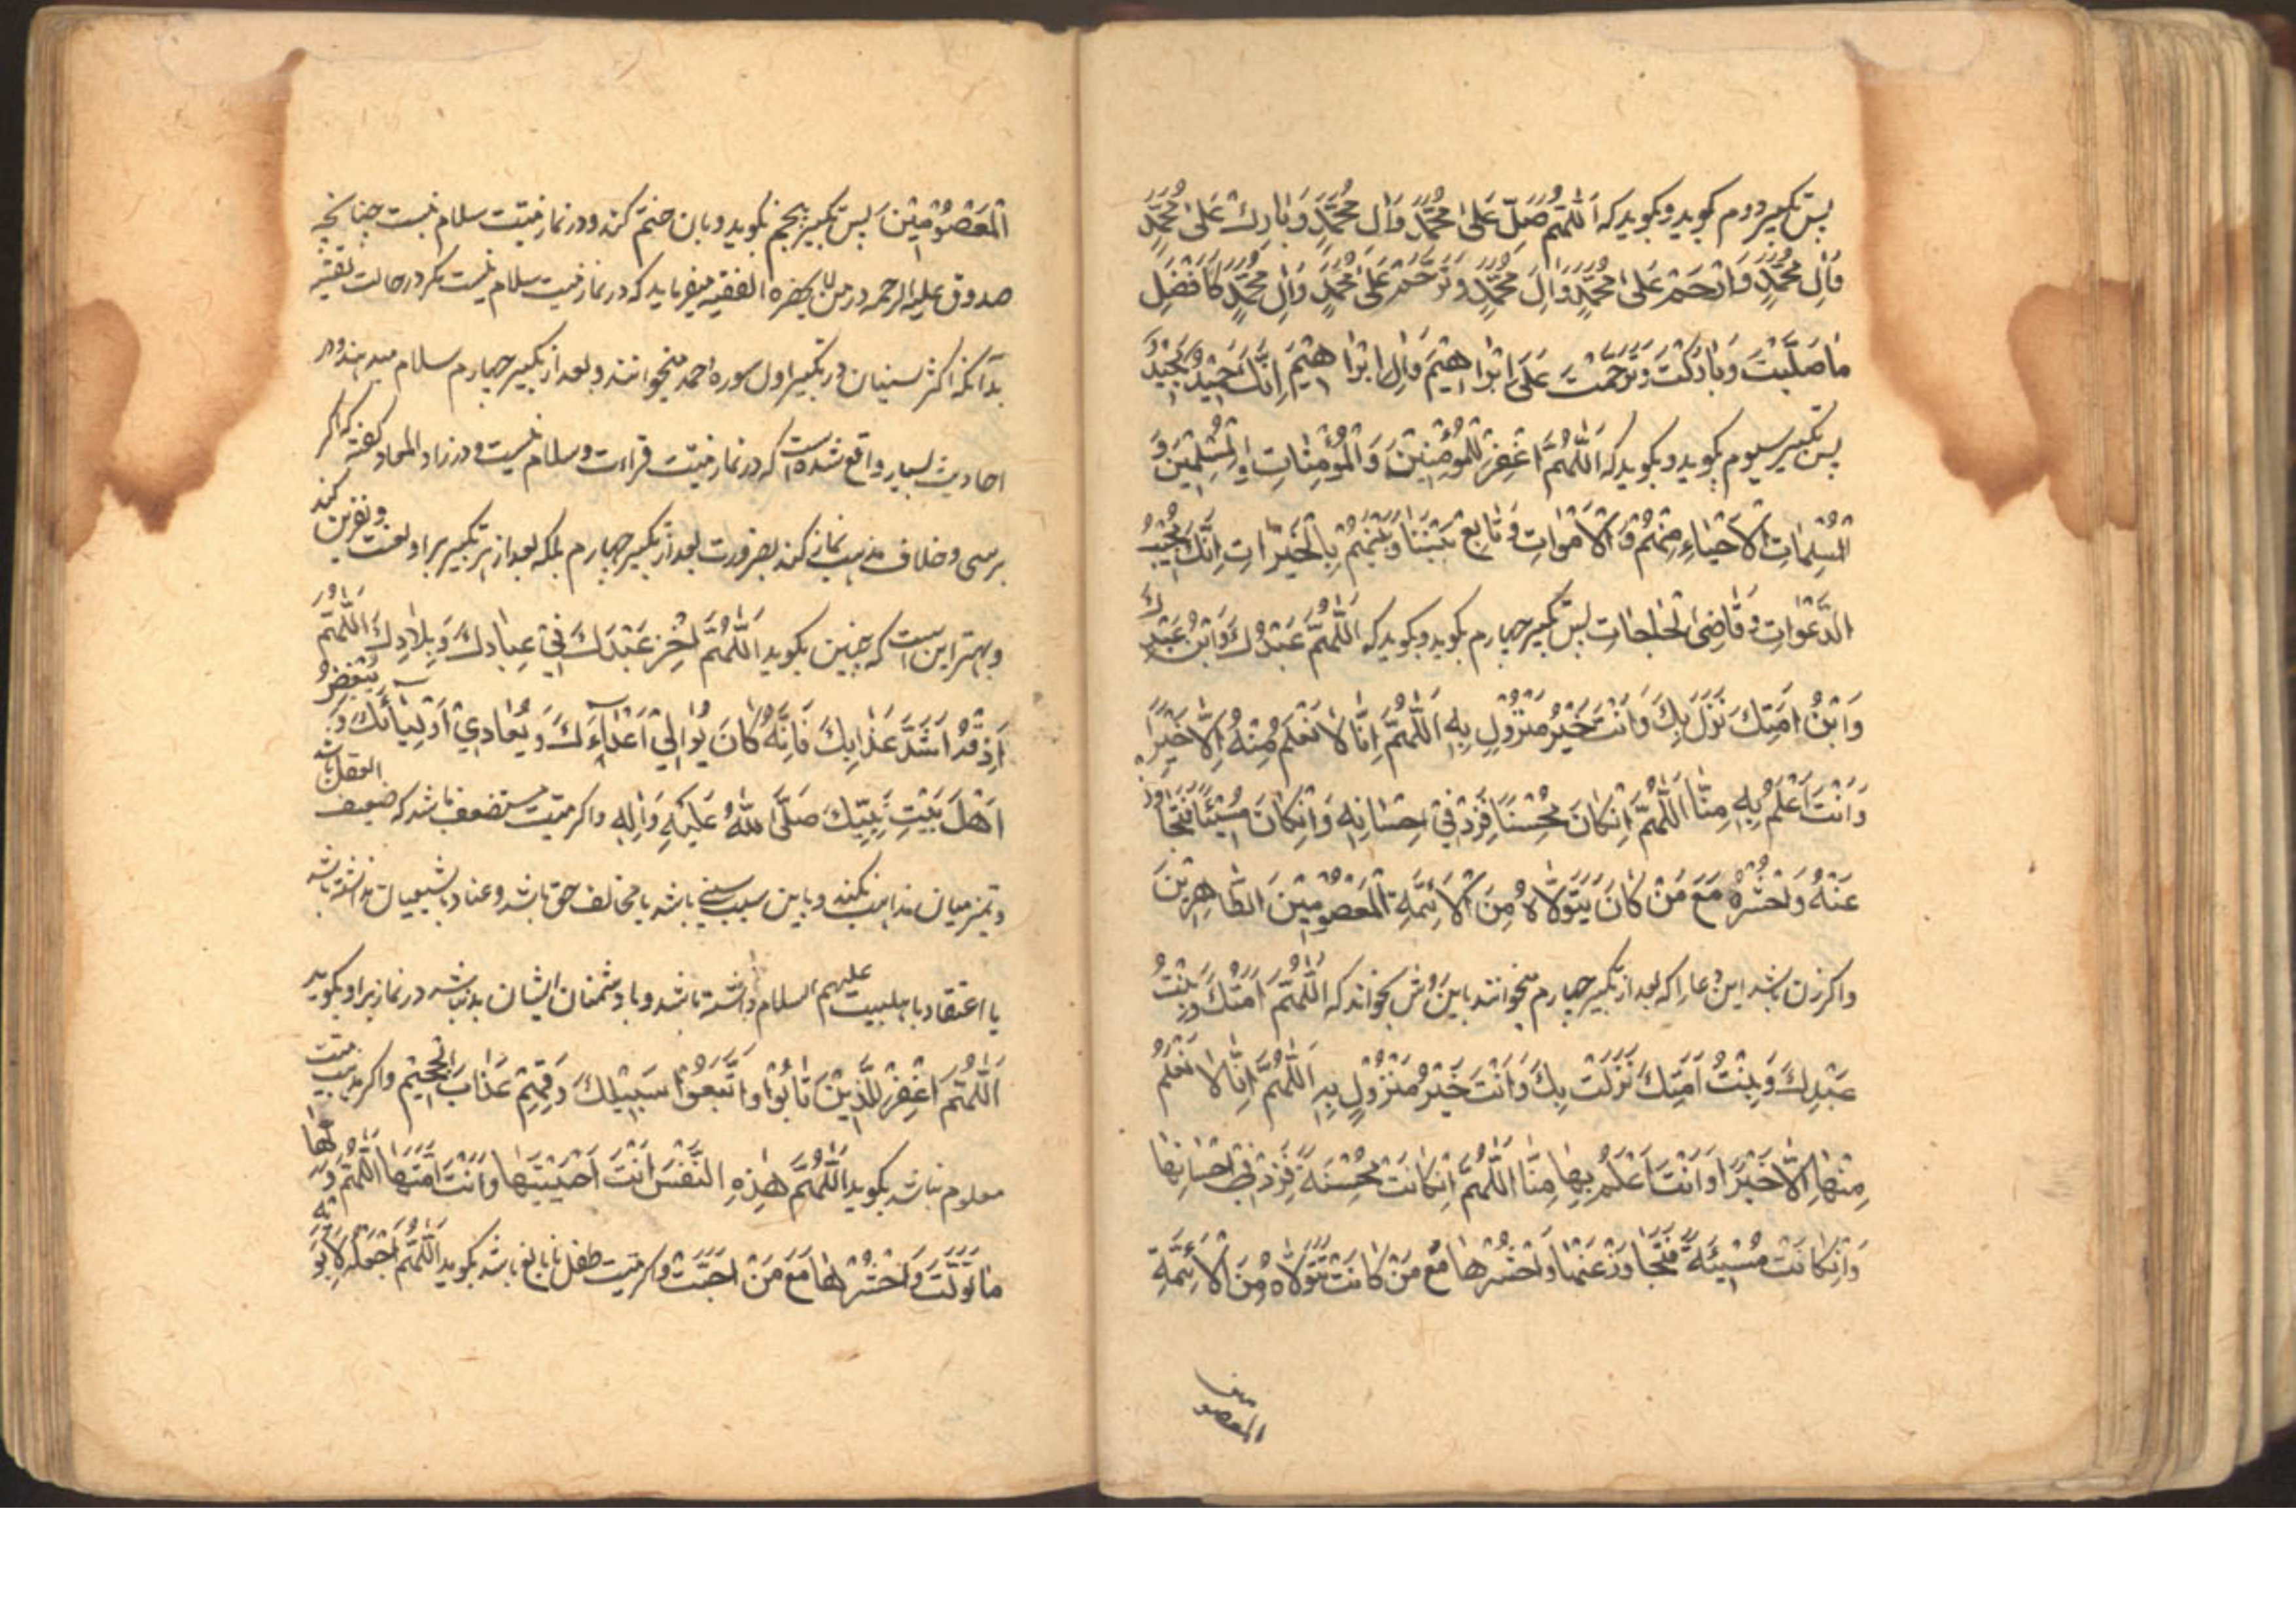 پس تکبیر دوم بکوید و بکوید که اَللّٰهُمَّ صَلِّ عَلٰی مُحَمَّدٍ وَاٰلِ مُحَمَّدٍ وَبٰارِكْ عَلٰی مُحَمَّدٍ
وَاٰلِ مُحَمَّدٍ وَارْحَمْ عَلٰی مُحَمَّدٍ وَاٰلِ مُحَمَّدٍ وَتَرَحَّمْ عَلٰی مُحَمَّدٍ وَاٰلِ مُحَمَّدٍ كَاَفْضَلِ
مٰا صَلَّیْتَ وَبٰارَكْتَ وَتَرَحَّمْتَ عَلٰی اِبْرٰاهِیْمَ وَاٰلِ اِبْرٰاهِیْمَ اِنَّكَ حَمِیْدٌ مَجِیْدٌ
پس تکبیر سیوم بکوید و بکوید که اَللّٰهُمَّ اغْفِرْ لِلْمُؤْمِنِیْنَ وَالْمُؤْمِنٰاتِ وَالْمُسْلِمِیْنَ وَ
الْمُسْلِمٰاتِ الْاَحْیٰاءِ مِنْهُمْ وَالْاَمْوٰاتِ وَ تٰابِعْ بَیْنَنٰا وَبَیْنَهُمْ بِالْخَیْرٰاتِ اِنَّكَ مُجِیْبُ
الدَّعَوٰاتِ وَ قٰاضِیَ الْحٰاجٰاتِ پس تکبیر چهارم بکوید و بکوید که اَللّٰهُمَّ عَبْدُكَ وَابْنُ عَبْدِكَ
وَابْنُ اَمَتِكَ نَزَلَ بِكَ وَاَنْتَ خَیْرُ مَنْزُوْلٍ بِهِ اَللّٰهُمَّ اِنّٰا لٰا نَعْلَمُ مِنْهُ اِلّٰا خَیْرًا
وَاَنْتَ اَعْلَمُ بِهِ مِنّٰا اَللّٰهُمَّ اِنْكٰانَ مُحْسِنًا فَزِدْ فِیْ اِحْسٰانِهِ وَاِنْكٰانَ مُسِیْئًا فَتَجٰاوَزْ
عَنْهُ وَاحْشُرْهُ مَعَ مَنْ كٰانَ یَتَوَلّٰاهُ مِنَ الْاَئِمَّةِ الْمَعْصُوْمِیْنَ الطّٰاهِرِیْنَ
واکر زن باشد این دعا را که بعد از تکبیر چهارم میخوانند باین روش بخواند که اَللّٰهُمَّ اَمَتُكَ وَبِنْتُ
عَبْدِكَ وَبِنْتُ اَمَتِكَ نَزَلَتْ بِكَ وَاَنْتَ خَیْرُ مَنْزُوْلٍ بِهِ اَللّٰهُمَّ اِنّٰا لٰا نَعْلَمُ
مِنْهٰا اِلّٰا خَیْرًا وَاَنْتَ اَعْلَمُ بِهٰا مِنّٰا اَللّٰهُمَّ اِنْكٰانَتْ مُحْسِنَةً فَزِدْ فِیْ اِحْسٰانِهٰا
وَاِنْكٰانَتْ مُسِیْئَةً فَتَجٰاوَزْ عَنْهٰا وَاحْشُرْهٰا مَعَ مَنْ كٰانَتْ تَتَوَلّٰاهُ مِنَ الْاَئِمَّةِ
المعصومین
اَلْمَعْصُوْمِیْنَ پس تکبیر پنجم بکوید و بان ختم کند و در نماز میّت سلام نیست چنانچه
صدوق علیه الرحمه در من لا یحضره الفقیه میفرماید که در نماز میت سلام نیست مکر در حالت تقیّه
بدآنکه اکثر سنیان در تکبیر اول سوره احمد میخوانند و بعد از تکبیر چهارم سلام میدهند و در
احادیث بسیار واقع شده است که در نماز میّت قراءت و سلام نیست و در زاد المعاد کفته که اکر
برسی و خلاف مذهب نمازی کند بضرورت بعد از تکبیر چهارم بلکه بعد از هر تکبیر بر او لعنت و نفرین کند
و بهتر این است که چنین بکوید اَللّٰهُمَّ اخْزِ عَبْدَكَ فِیْ عِبٰادِكَ وَبِلٰادِكَ اَللّٰهُمَّ
اَذِقْهُ اَشَدَّ عَذٰابِكَ فَاِنَّهُ كٰانَ یُوٰالِیْ اَعْدٰآءَكَ وَیُعٰادِیْ اَوْلِیٰآئَكَ وَ یُبْغِضُ
اَهْلَ بَیْتِ نَبِیِّكَ صَلَّی اللهُ عَلَیْهِ وَاٰلِهِ واکر میّت مستضعف باشد که ضعیف العقل باشد
و تمیز میان مذاهب نکند و باین سبب سنی باشد یا مخالف حق باشد و عناد با شیعیان نداشته باشد
یا اعتقاد با هلبیت علیهم السلام داشته باشد و با دشمنان ایشان بد نباشد در نماز بر او بکوید
اَللّٰهُمَّ اغْفِرْ لِلَّذِیْنَ تٰابُوْا وَاتَّبَعُوْا سَبِیْلَكَ وَقِهِمْ عَذٰابَ الْجَحِیْمِ واکر مذهب میّت
معلوم نباشد بکوید اَللّٰهُمَّ هٰذِهِ النَّفْسَ اَنْتَ اَحْیَیْتَهٰا وَاَنْتَ اَمَتَّهٰا اَللّٰهُمَّ وَلِّهٰا
مٰا تَوَلَّتْ وَاحْشُرْهٰا مَعَ مَنْ اَحَبَّتْ واکر میّت طفل نابالغ باشد بکوید اَللّٰهُمَّ اجْعَلْهُ لِاَبَوَیْهِ